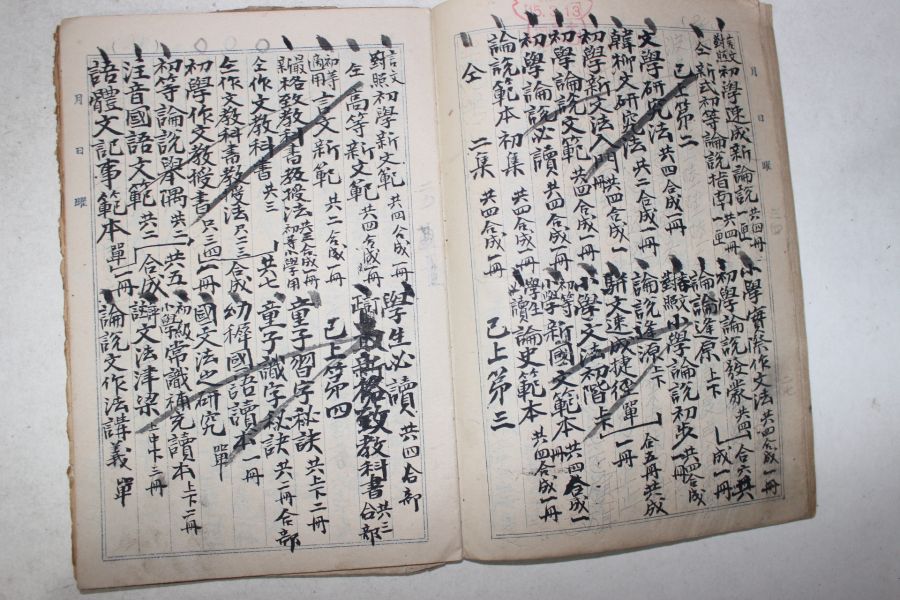 言文對照 初學速成新論說 共四冊一匣
仝 新式初等論說指南 共四冊一匣
已上第二
文學研究法 共四合成一冊
韓柳文研究法 共二合成一冊
初學新文法入門 共四合成一冊
初學論說文範 共四合成一冊
初學論說必讀 共四合成一冊
論說範本 初集 共四合成一冊
仝 二集 共四合成一冊
小學實際作文法 共四合成一冊
初學論說發凡 共四
論說逢原 上下
對照 小學論說初步 共四合成一冊
論說逢源 下 合五冊共成
駢文速成捷徑 單 一冊
小學文法初階 上下
初等小學 新國文範本 共四合成一冊
學生必讀 論史範本 共四合成一冊
已上第三
月 日 曜
言文對照 初學新文範 共四合成一冊
仝 高等新文範 共四合成一冊
初等適用 言文新範 共二合成一冊
最新 格致教科書教授法 共三合成一冊 初等小學用
仝作文教科書 共三
仝作文教科書教授法 只二三合成
初學作文教授書 只三四一冊 共七
初等論說舉隅 共二 共五
注音國語文範 共二 合成
語體文記事範本 單一冊
學生必讀 共四合部
最新格致教科書 共三合部
已上第四
童子習字秘訣 共上下二冊
童子識字秘訣 共二冊合部
幼稺國語讀本 一冊
國文法之研究 單
初級小學 常識補充讀本 上下二冊
評註 文法津梁 上中下三冊
論說文作法講義 單
月 日 曜